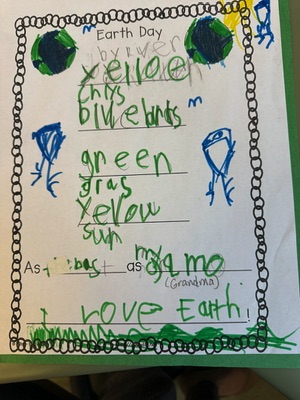 Earth Day
yelloe
chiys
bluebirds
green
gras
Yelow
sun
As best as my
gamo
(Grandma)
I Love Earth!